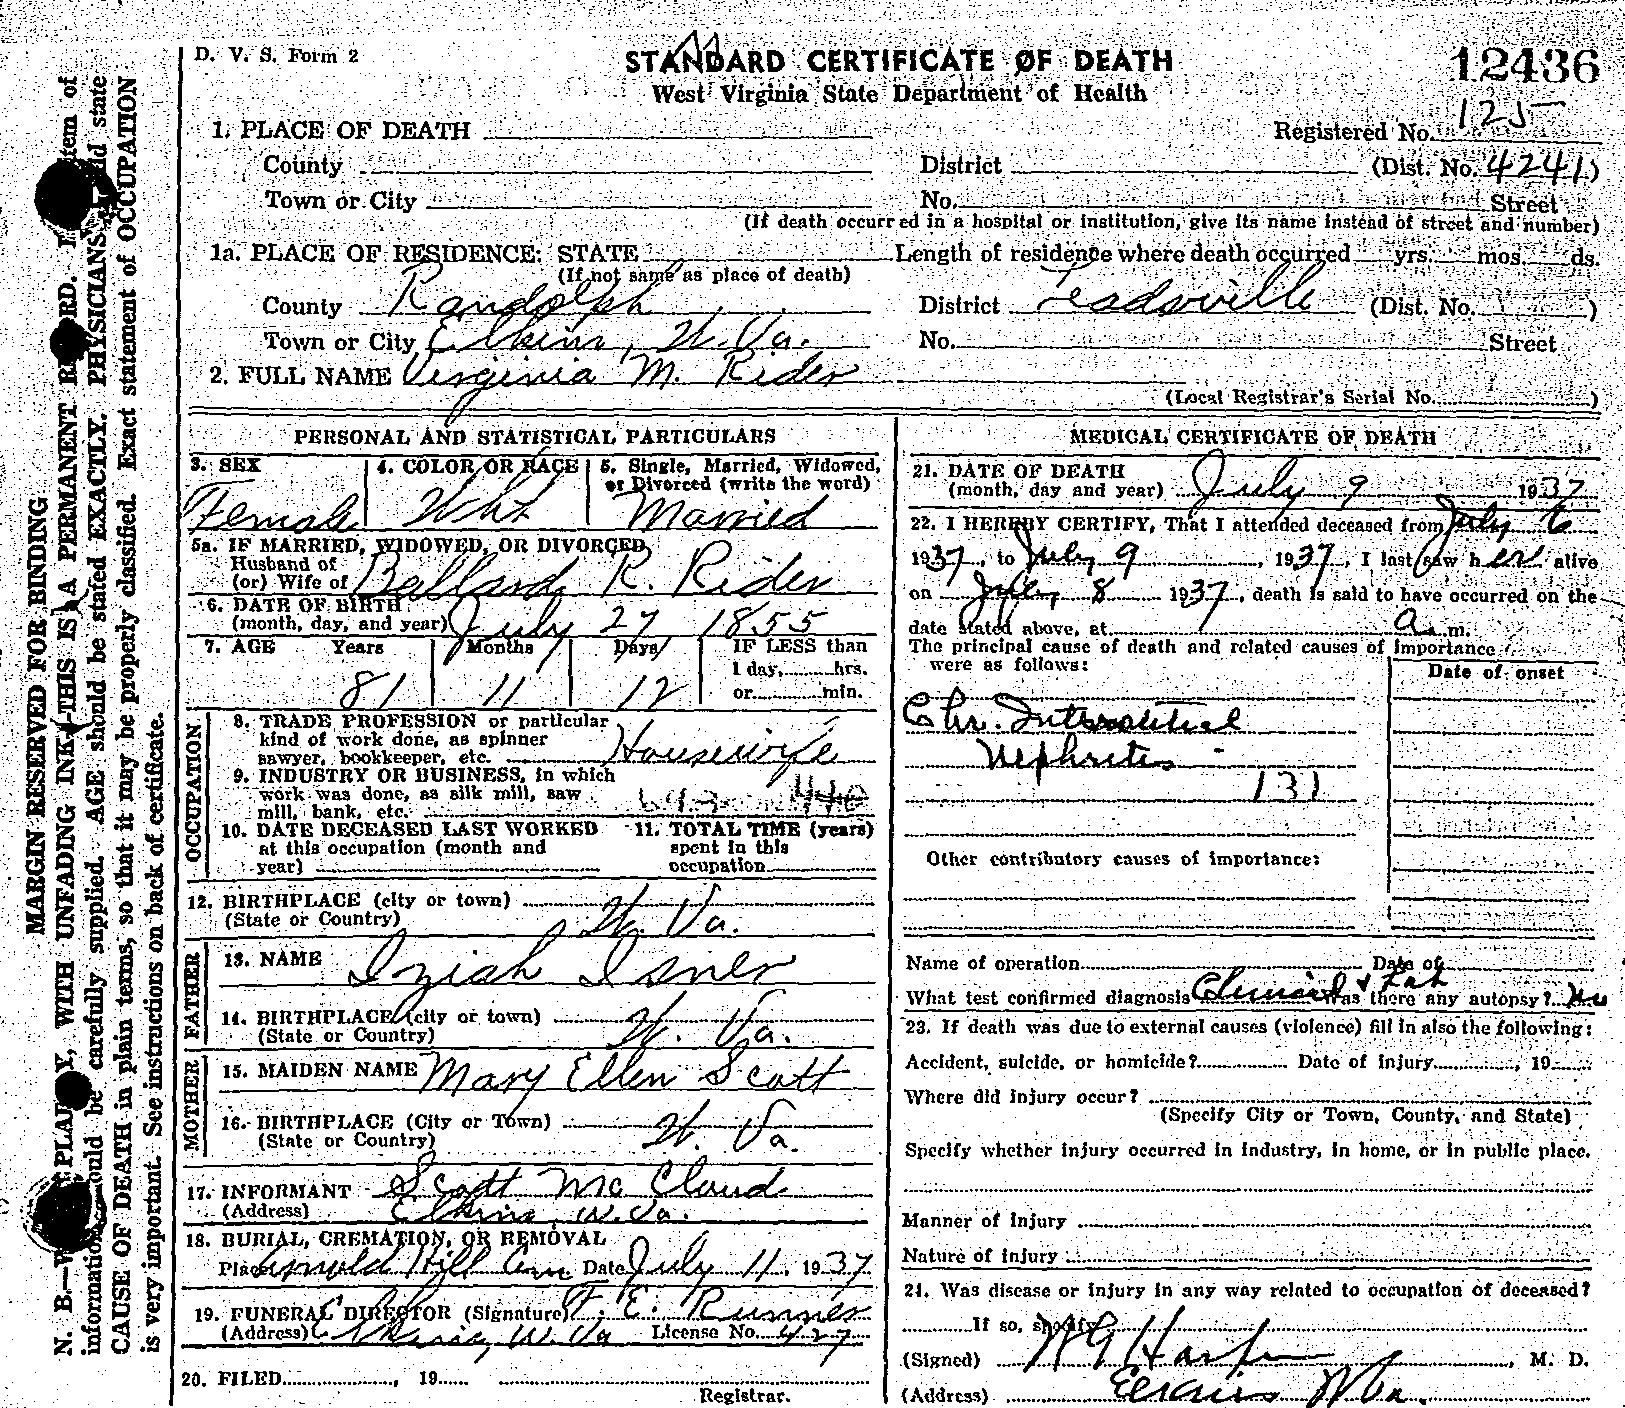 D. V. S. Form 2
STANDARD CERTIFICATE OF DEATH
12436
West Virginia State Department of Health
1. PLACE OF DEATH
Registered No. 125
County
District
(Dist. No. 4241)
Town or City
No. Street
(If death occurred in a hospital or institution, give its name instead of street and number)
1a. PLACE OF RESIDENCE: STATE
Length of residence where death occurred yrs. mos. ds.
(If not same as place of death)
County Randolph
District Leadsville (Dist. No. )
Town or City Elkins, W. Va.
No. Street
2. FULL NAME Virginia M. Rider
(Local Registrar's Serial No. )
PERSONAL AND STATISTICAL PARTICULARS
3. SEX
Female
4. COLOR OR RACE
Wht
5. Single, Married, Widowed,
or Divorced (write the word)
Married
5a. IF MARRIED, WIDOWED, OR DIVORCED
Husband of
(or) Wife of Ballard R. Rider
6. DATE OF BIRTH
(month, day, and year) July 27 1855
7. AGE Years Months Days
IF LESS than
1 day, hrs.
or min.
81 11 12
OCCUPATION
8. TRADE PROFESSION or particular
kind of work done, as spinner
sawyer, bookkeeper, etc. Housewife
9. INDUSTRY OR BUSINESS, in which
work was done, as silk mill, saw
mill, bank, etc.
10. DATE DECEASED LAST WORKED
at this occupation (month and
year)
11. TOTAL TIME (years)
spent in this
occupation
12. BIRTHPLACE (city or town)
(State or Country) W. Va.
FATHER
13. NAME Iziah Isner
14. BIRTHPLACE (city or town)
(State or Country) W. Va.
MOTHER
15. MAIDEN NAME Mary Ellen Scott
16. BIRTHPLACE (City or Town)
(State or Country) W. Va.
17. INFORMANT Scott Mc Cloud
(Address) Elkins, W. Va.
18. BURIAL, CREMATION, OR REMOVAL
Place Arnold Hill Cem Date July 11, 1937
19. FUNERAL DIRECTOR (Signature) F. E. Runner
(Address) Elkins, W. Va License No. 427
20. FILED , 19
Registrar.
MEDICAL CERTIFICATE OF DEATH
21. DATE OF DEATH
(month, day and year) July 9 1937
22. I HEREBY CERTIFY, That I attended deceased from July 6
1937, to July 9, 1937, I last saw her alive
on July 8 1937, death is said to have occurred on the
date stated above, at a.m.
The principal cause of death and related causes of importance
were as follows:
Date of onset
Chr. Interstitial
Nephritis
131
Other contributory causes of importance:
Name of operation Date of
What test confirmed diagnosis Clinical & Lab Was there any autopsy? No
23. If death was due to external causes (violence) fill in also the following:
Accident, suicide, or homicide? Date of injury , 19
Where did injury occur?
(Specify City or Town, County, and State)
Specify whether injury occurred in industry, in home, or in public place.
Manner of injury
Nature of injury
24. Was disease or injury in any way related to occupation of deceased?
If so, specify
(Signed) , M. D.
(Address) Elkins W Va.
MARGIN RESERVED FOR BINDING
N. B.—WRITE PLAINLY, WITH UNFADING INK—THIS IS A PERMANENT RECORD. Every item of
information should be carefully supplied. AGE should be stated EXACTLY. PHYSICIANS should state
CAUSE OF DEATH in plain terms, so that it may be properly classified. Exact statement of OCCUPATION
is very important. See instructions on back of certificate.